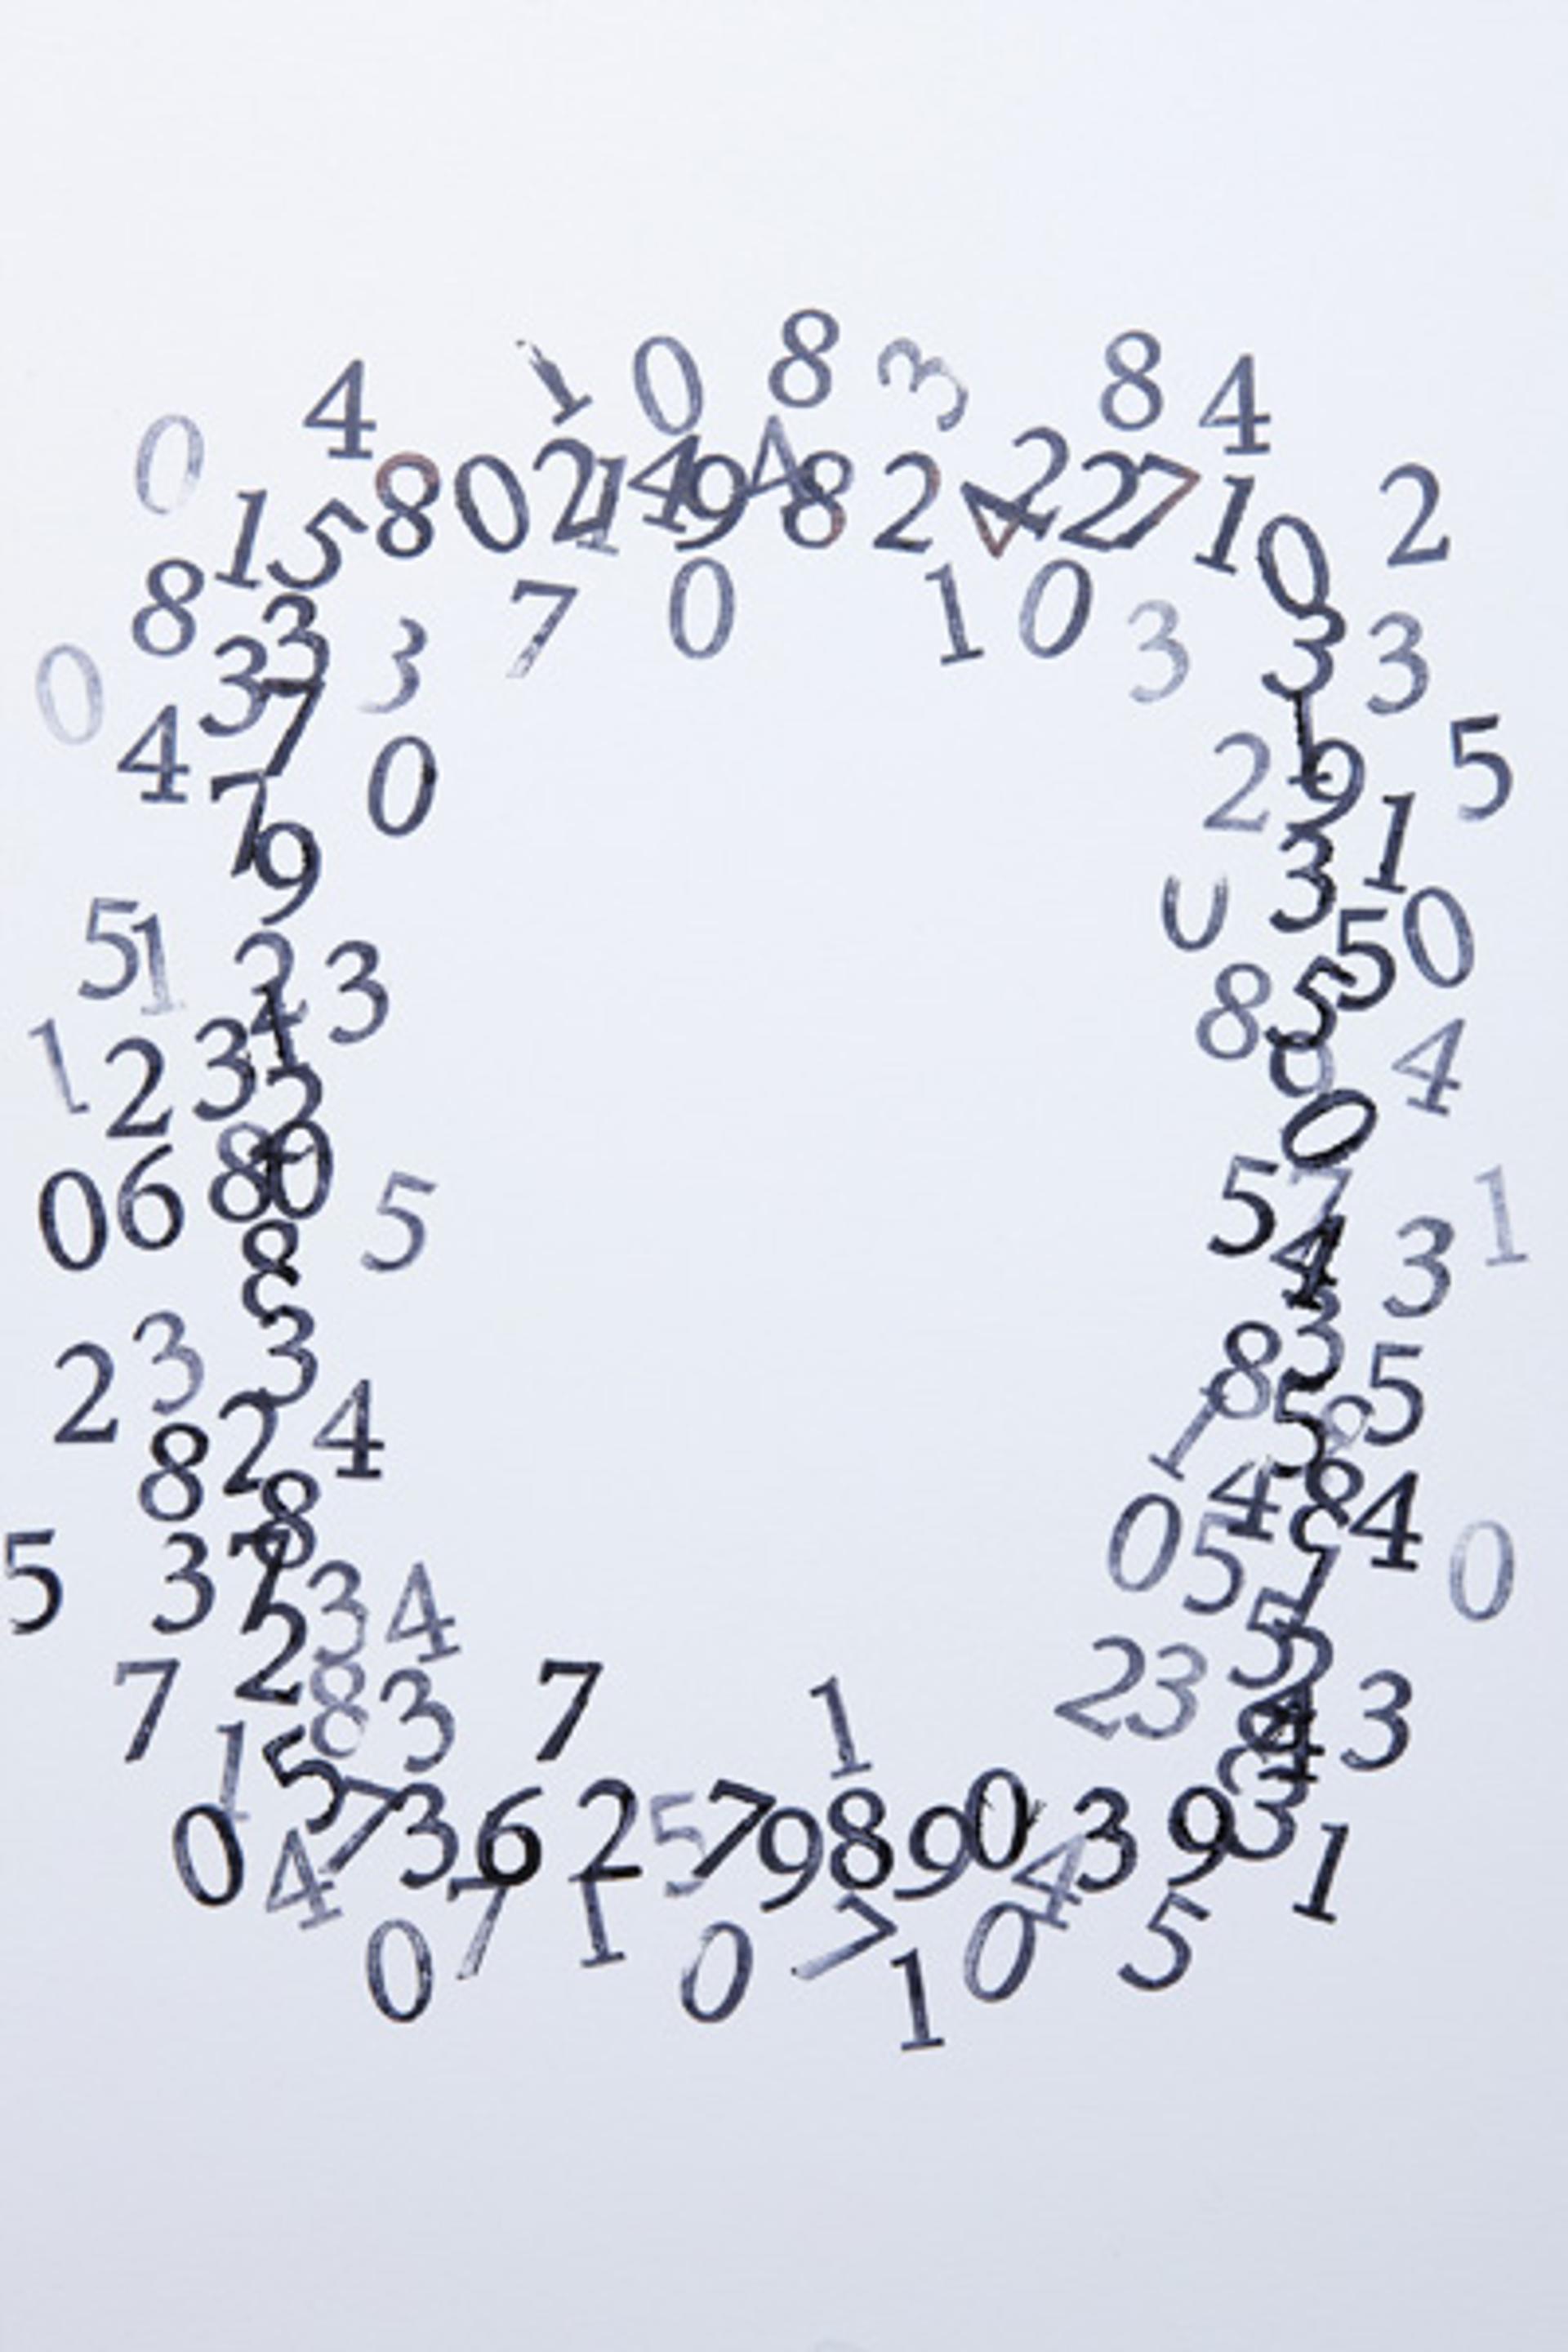 8
1 0 3 8 4
4
0
8 0 2 1 4 9 4 8 2 4 2 2 7 1 2
1 5 0
8 7 0 1 0 3
3 3 3 3 3
0
4 7 0 2 1 9 5
7 9 3 1
5 1 0
2 3 5 0
1 2 3 8 5 4
0 6 8 0 5 0
5 7 3 1
8 4
2 3 3 8 3 5
8 2 4 1 5 8
8 4 8 4
5 3 7 0 5 1 0
2 3 4 5 5
7 8 3 7 1 2 3 4 3
1 5
0 4 7 3 6 2 5 7 9 8 9 0 4 3 9 3 1
0 7 1 0 7 1 0 5